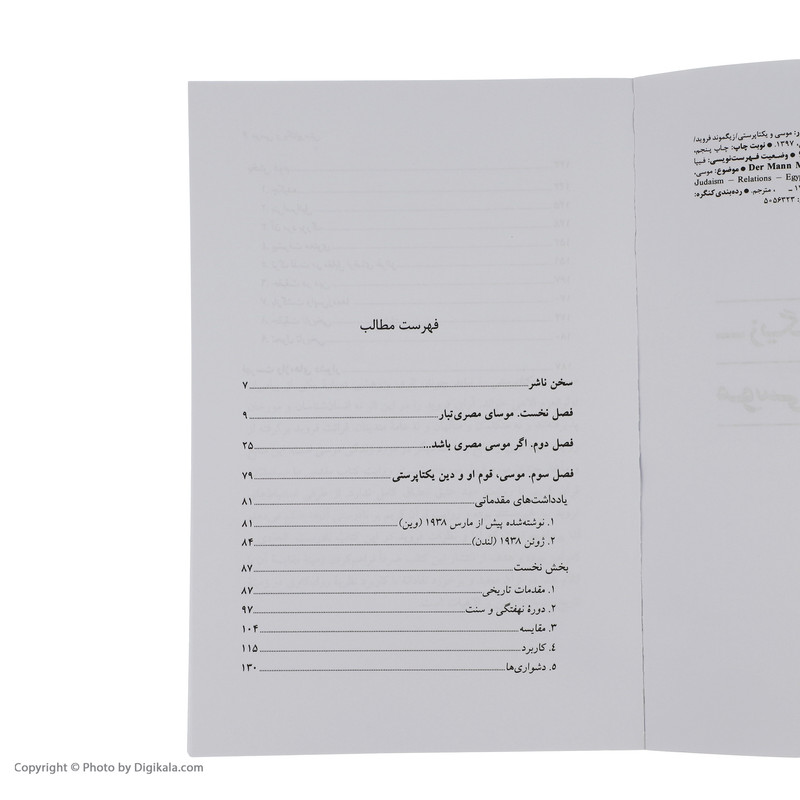 ر: موسی و یکتاپرستی/زیگموند فروید/
، ۱۳۹۷. ● نوبت چاپ: چاپ پنجم،
● وضعیت فهرست‌نویسی: فیپا
Der Mann M ● موضوع: موسی،
Judaism – Relations – Egyp
۱۳ ـ ، مترجم. ● رده‌بندی کنگره:
: ۵۰۵۶۳۲۳
فهرست مطالب
سخن ناشر ۷
فصل نخست. موسای مصری‌تبار ۹
فصل دوم. اگر موسی مصری باشد... ۲۵
فصل سوم. موسی، قوم او و دین یکتاپرستی ۷۹
یادداشت‌های مقدماتی ۸۱
۱. نوشته‌شده پیش از مارس ۱۹۳۸ (وین) ۸۱
۲. ژوئن ۱۹۳۸ (لندن) ۸۴
بخش نخست ۸۷
۱. مقدمات تاریخی ۸۷
۲. دورهٔ نهفتگی و سنت ۹۷
۳. مقایسه ۱۰۴
۴. کاربرد ۱۱۵
۵. دشواری‌ها ۱۳۰
Copyright © Photo by Digikala.com